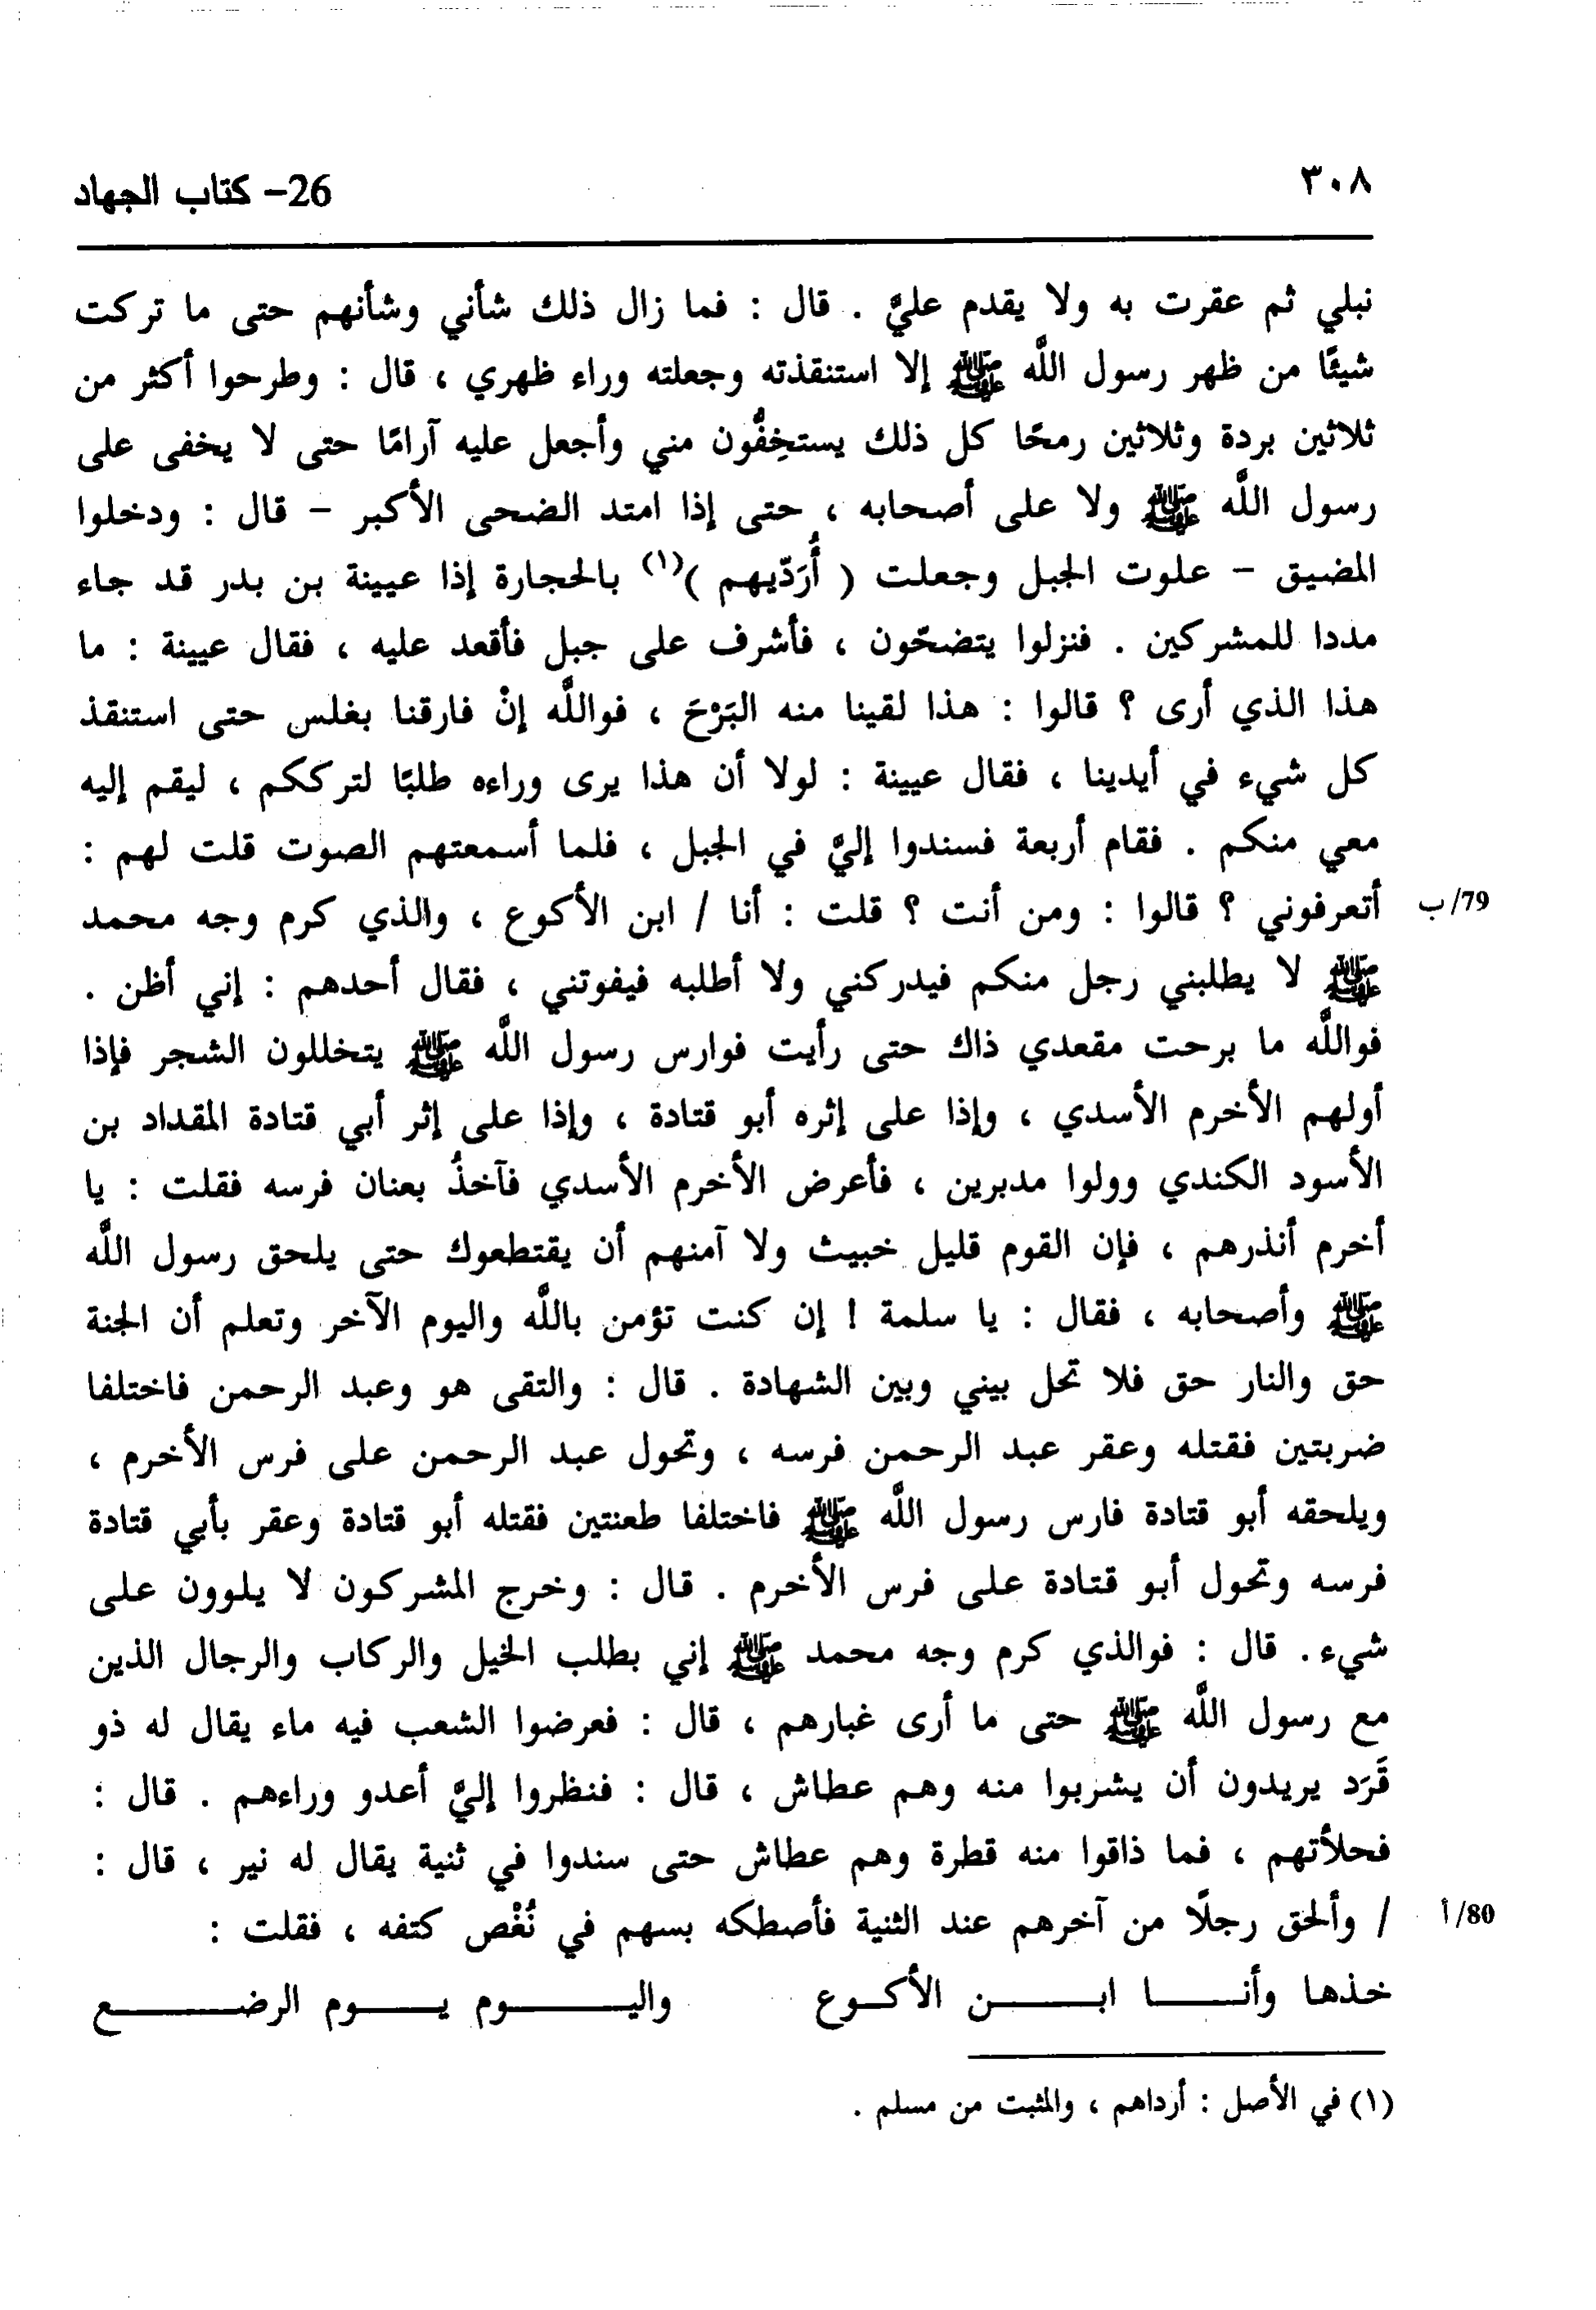 ٣٠٨
26- كتاب الجهاد
نبلي ثم عقرت به ولا يقدم عليَّ . قال : فما زال ذلك شأني وشأنهم حتى ما تركت
شيئًا من ظهر رسول اللَّه ﷺ إلا استنقذته وجعلته وراء ظهري ، قال : وطرحوا أكثر من
ثلاثين بردة وثلاثين رمحًا كل ذلك يستخِفُّون مني وأجعل عليه آرامًا حتى لا يخفى على
رسول اللَّه ﷺ ولا على أصحابه ، حتى إذا امتد الضحى الأكبر – قال : ودخلوا
المضيق – علوت الجبل وجعلت ( أُرَدّيهم )(١) بالحجارة إذا عيينة بن بدر قد جاء
مددا للمشركين . فنزلوا يتضحّون ، فأشرف على جبل فأقعد عليه ، فقال عيينة : ما
هذا الذي أرى ؟ قالوا : هذا لقينا منه البَرْحَ ، فواللَّه إنْ فارقنا بغلس حتى استنقذ
كل شيء في أيدينا ، فقال عيينة : لولا أن هذا يرى وراءه طلبًا لترككم ، ليقم إليه
معي منكم . فقام أربعة فسندوا إليَّ في الجبل ، فلما أسمعتهم الصوت قلت لهم :
أتعرفوني ؟ قالوا : ومن أنت ؟ قلت : أنا / ابن الأكوع ، والذي كرم وجه محمد
79/ب
ﷺ لا يطلبني رجل منكم فيدركني ولا أطلبه فيفوتني ، فقال أحدهم : إني أظن .
فواللَّه ما برحت مقعدي ذاك حتى رأيت فوارس رسول اللَّه ﷺ يتخللون الشجر فإذا
أولهم الأخرم الأسدي ، وإذا على إثره أبو قتادة ، وإذا على إثر أبي قتادة المقداد بن
الأسود الكندي وولوا مدبرين ، فأعرض الأخرم الأسدي فآخذُ بعنان فرسه فقلت : يا
أخرم أنذرهم ، فإن القوم قليل خبيث ولا آمنهم أن يقتطعوك حتى يلحق رسول اللَّه
ﷺ وأصحابه ، فقال : يا سلمة ! إن كنت تؤمن باللَّه واليوم الآخر وتعلم أن الجنة
حق والنار حق فلا تحل بيني وبين الشهادة . قال : والتقى هو وعبد الرحمن فاختلفا
ضربتين فقتله وعقر عبد الرحمن فرسه ، وتحول عبد الرحمن على فرس الأخرم ،
ويلحقه أبو قتادة فارس رسول اللَّه ﷺ فاختلفا طعنتين فقتله أبو قتادة وعقر بأبي قتادة
فرسه وتحول أبو قتادة على فرس الأخرم . قال : وخرج المشركون لا يلوون على
شيء . قال : فوالذي كرم وجه محمد ﷺ إني بطلب الخيل والركاب والرجال الذين
مع رسول اللَّه ﷺ حتى ما أرى غبارهم ، قال : فعرضوا الشعب فيه ماء يقال له ذو
قَرَد يريدون أن يشربوا منه وهم عطاش ، قال : فنظروا إليَّ أعدو وراءهم . قال :
فحلأتهم ، فما ذاقوا منه قطرة وهم عطاش حتى سندوا في ثنية يقال له نير ، قال :
/ وألحق رجلًا من آخرهم عند الثنية فأصطكه بسهم في نُغْص كتفه ، فقلت :
80/أ
خذها وأنـا ابـن الأكوع واليـوم يـوم الرضـع
(١) في الأصل : أرداهم ، والمثبت من مسلم .